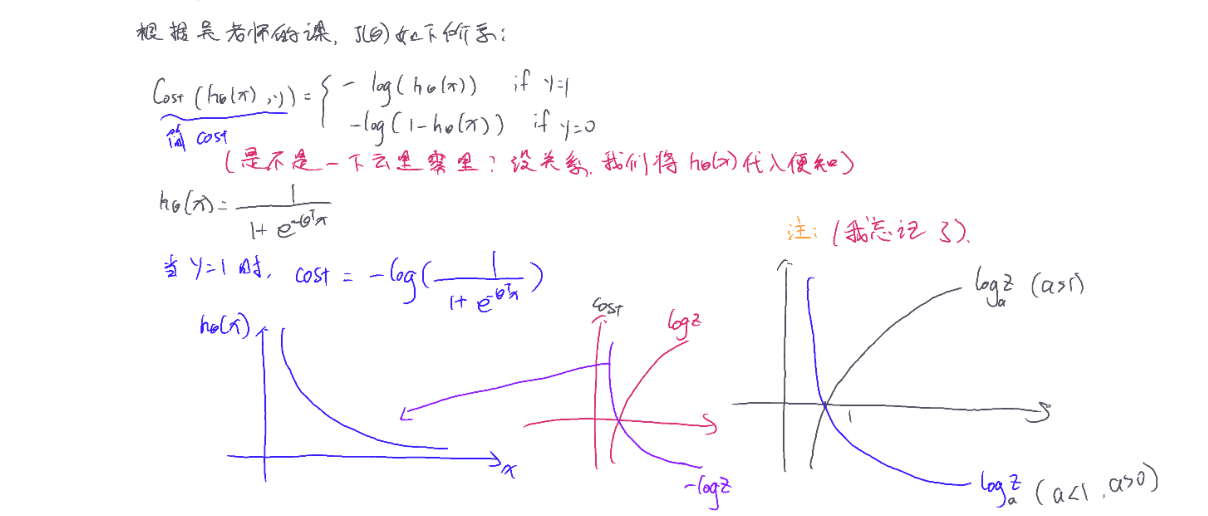 根据吴老师的课, J(θ)如下所示:
Cost (hθ(x), y) = { - log( hθ(x)) if y=1
-log( 1-hθ(x)) if y=0
cost
(是不是一下云里雾里? 没关系, 我们将 hθ(x)代入便知)
hθ(x) = 1 / (1+ e^(-θᵀx))
注: (我忘记了).
当 y=1 时, cost = -log( 1 / (1+ e^(-θᵀx)) )
hθ(x)
x
cost
logz
-logz
logₐz (a>1)
1
logₐz (a<1, a>0)